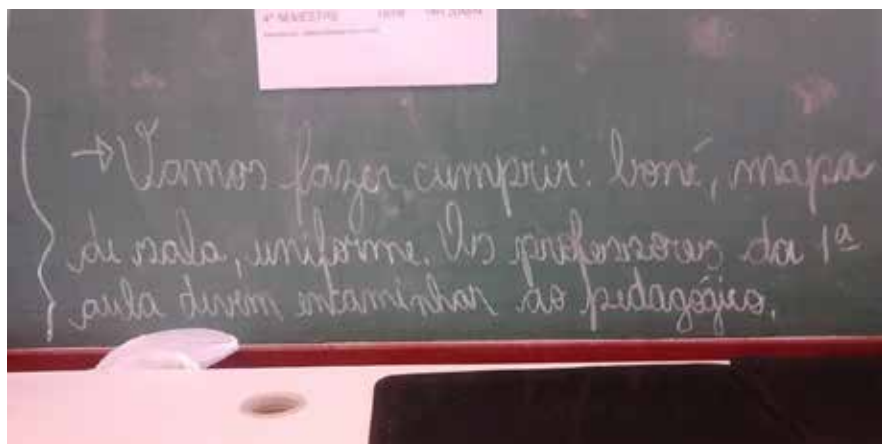 4º SEMESTRE
→ Vamos fazer cumprir: boné, mapa
de sala, uniforme. Os professores da 1ª
aula devem encaminhar ao pedagógico.